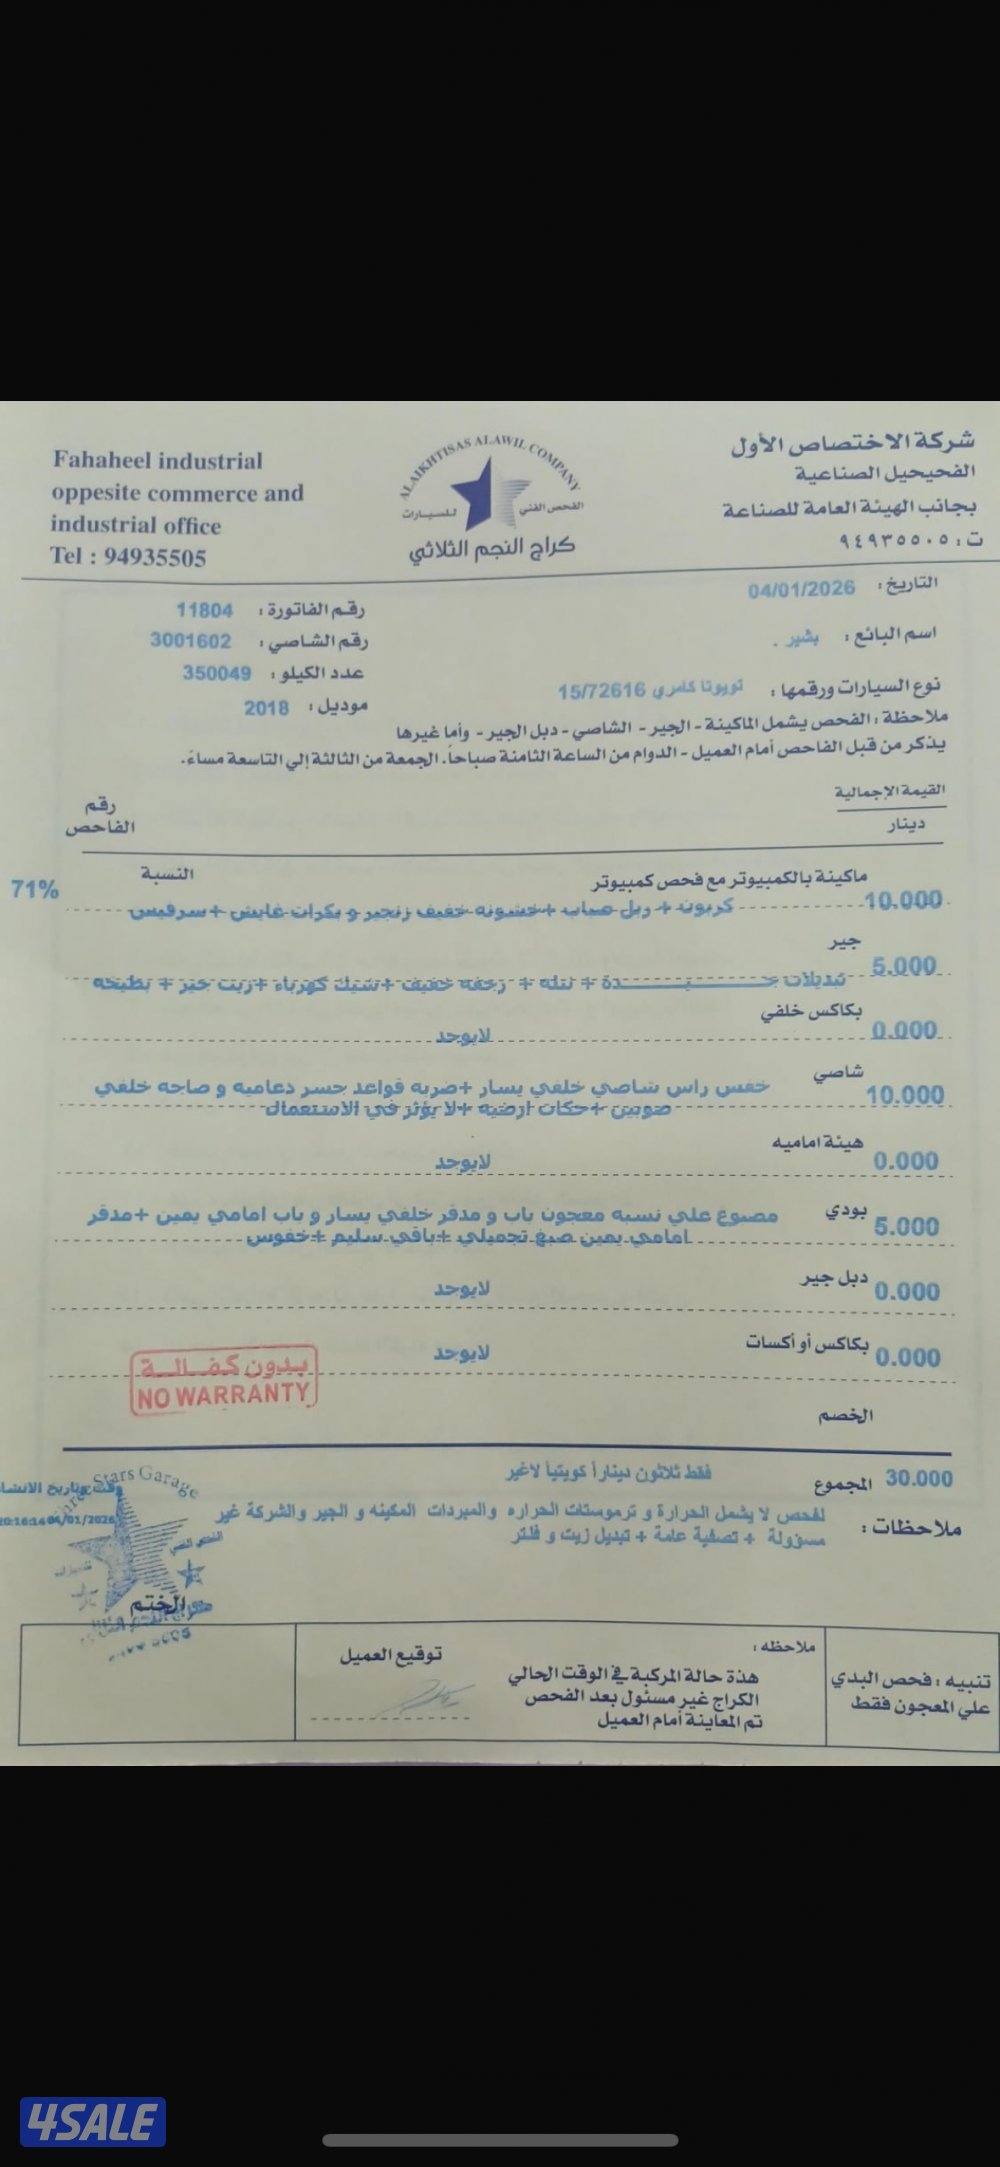 شركة الاختصاص الأول
الفحيحيل الصناعية
بجانب الهيئة العامة للصناعة
ت : ٩٤٩٣٥٥٠٥
ALAIKHTISAS ALAWIL COMPANY
الفحص الفني للسيارات
كراج النجم الثلاثي
Fahaheel industrial
oppesite commerce and
industrial office
Tel : 94935505
التاريخ : 04/01/2026
رقم الفاتورة : 11804
اسم البائع : بشير .
رقم الشاصي : 3001602
عدد الكيلو : 350049
نوع السيارات ورقمها : تويوتا كامري 15/72616
موديل : 2018
ملاحظة : الفحص يشمل الماكينة - الجير - الشاصي - دبل الجير - وأما غيرها
يذكر من قبل الفاحص أمام العميل - الدوام من الساعة الثامنة صباحاً. الجمعة من الثالثة إلي التاسعة مساءً.
القيمة الإجمالية
دينار
رقم
الفاحص
ماكينة بالكمبيوتر مع فحص كمبيوتر
النسبة 71%
10.000 كربون + ربل صباب +خشونه خفيف زنجير و بكرات غايش +سرفيس
جير
5.000 تبديلات جـــيـــدة + نتله + رجفه خفيف +شيك كهرباء +زيت جير + بطيخه
بكاكس خلفي
0.000 لايوجد
شاصي
10.000 خفس راس شاصي خلفي يسار +ضربه قواعد جسر دعاميه و صاجه خلفي
صوبين +حكات ارضيه +لا يؤثر في الاستعمال
هيئة اماميه
0.000 لايوجد
بودي
5.000 مصبوغ علي نسبه معجون باب و مدقر خلفي يسار و باب امامي يمين +مدقر
امامي يمين صبغ تجميلي +باقي سليم +خفوس
دبل جير
0.000 لايوجد
بكاكس أو أكسات
0.000 لايوجد
بدون كفالة
NO WARRANTY
الخصم
30.000 المجموع فقط ثلاثون ديناراً كويتياً لاغير
ملاحظات : لفحص لا يشمل الحرارة و ترموستات الحراره والمبردات المكينه و الجير والشركة غير
مسؤولة + تصفية عامة + تبديل زيت و فلتر
وقت وتاريخ الانشاء
20:16:14 04/01/2026
Stars Garage
الختم
تنبيه : فحص البدي
علي المعجون فقط
ملاحظه :
هذة حالة المركبة في الوقت الحالي
الكراج غير مسئول بعد الفحص
تم المعاينة أمام العميل
توقيع العميل
4SALE